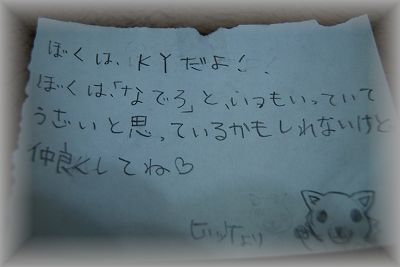 ぼくは、KYだよ!
ぼくは、「なでろ」と、いつもいっていて
うざいと思っているかもしれないけど
仲良くしてね♡
より